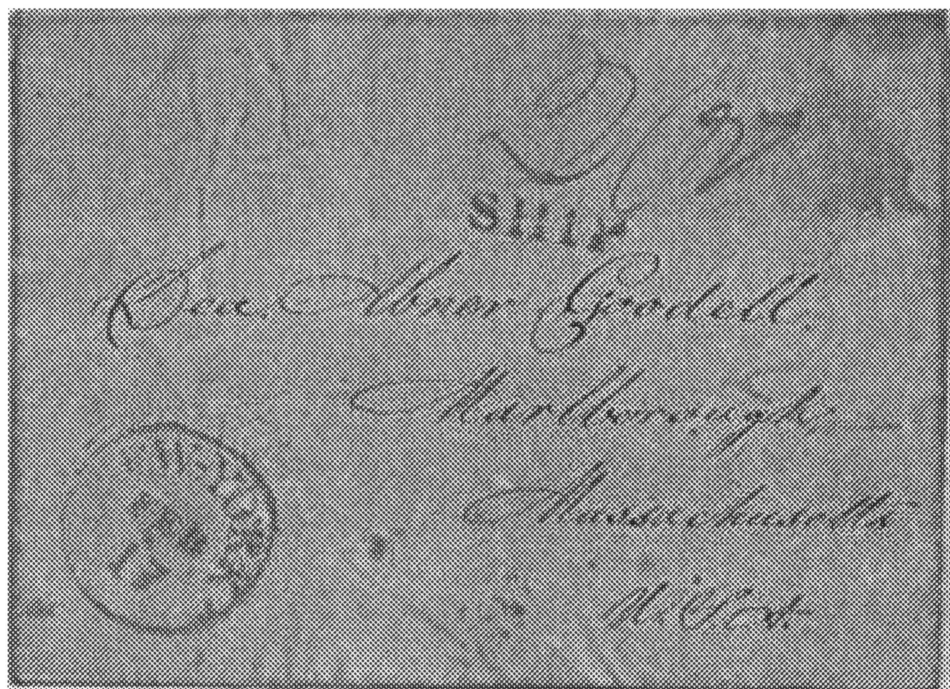 SHIP
Dea. Abner Goodell.
Marlborough,
Massachusetts
U.S.A.
NEW-YORK